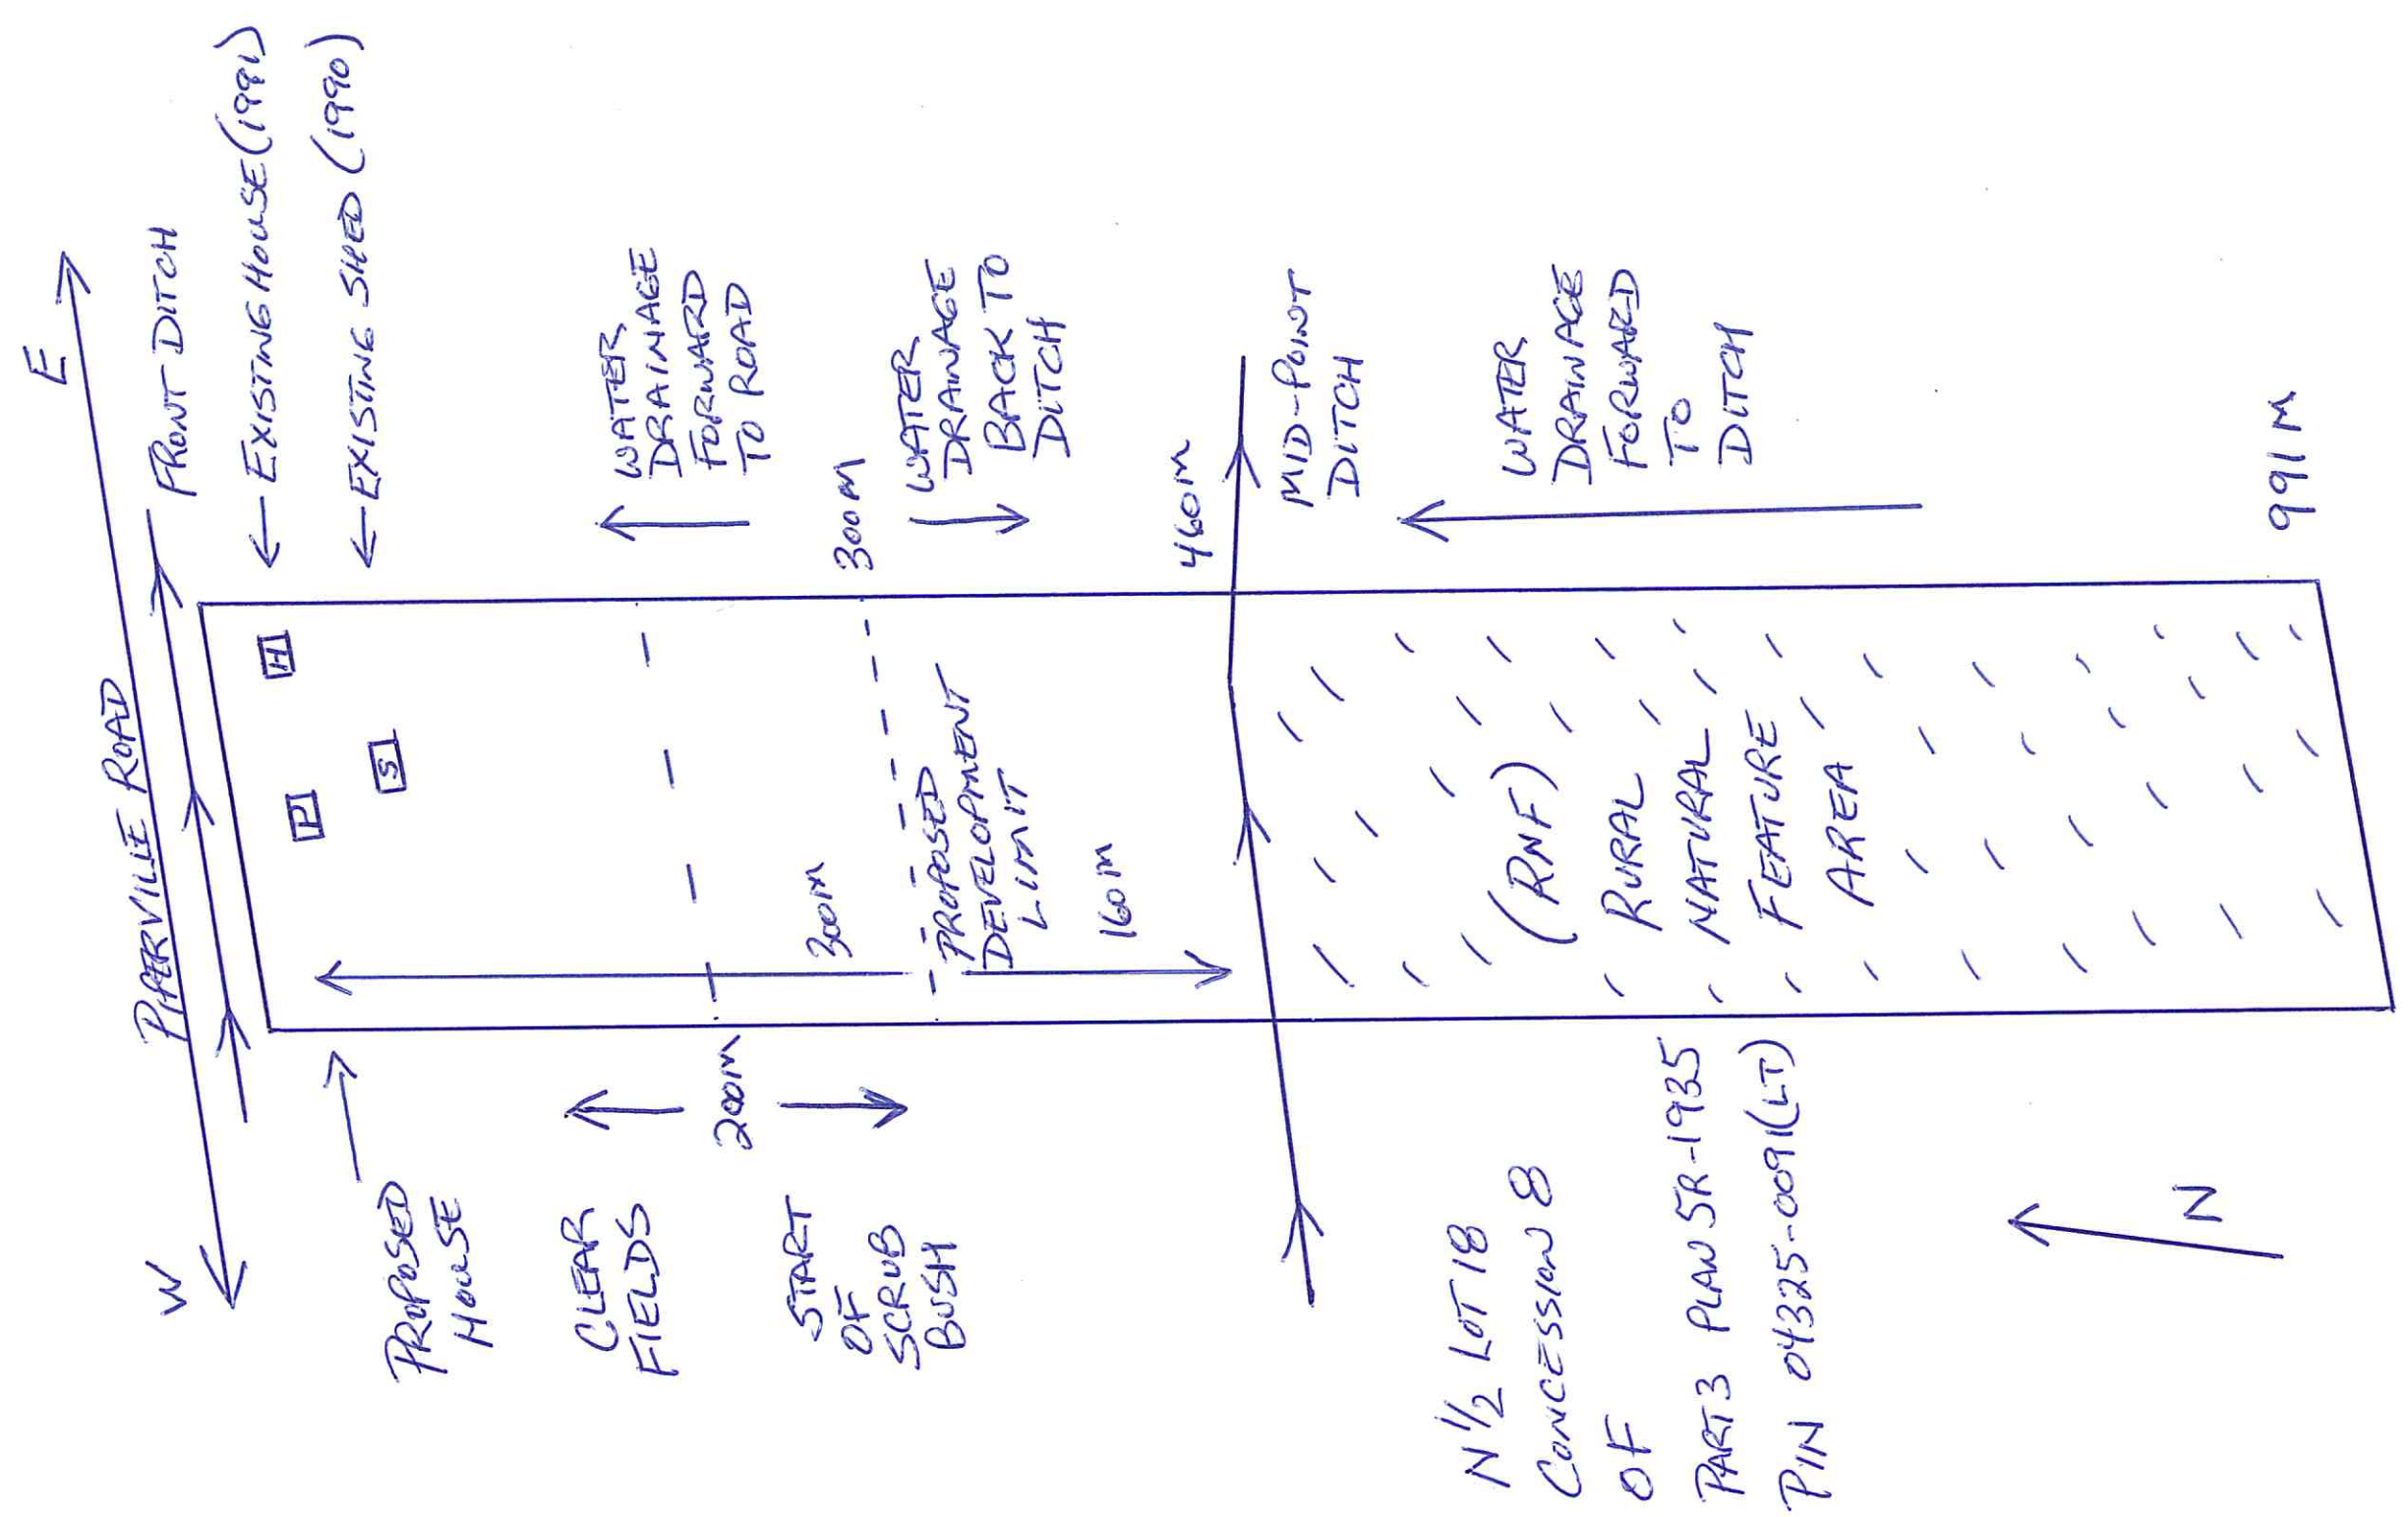 W
E
PIPERVILLE ROAD
FRONT DITCH
← EXISTING HOUSE (1991)
← EXISTING SHED (1990)
H
P
S
PROPOSED
HOUSE
CLEAR
FIELDS
200M
START
OF
SCRUB
BUSH
WATER
DRAINAGE
FORWARD
TO ROAD
300M
300M
WATER
DRANAGE
BACK TO
DITCH
PROPOSED
DEVELOPMENT
LIMIT
160M
460M
MID-POINT
DITCH
(RNF)
RURAL
NATURAL
FEATURE
AREA
WATER
DRAINAGE
FORWARD
TO
DITCH
N 1/2 LOT 18
CONCESSION 8
OF
PART 3 PLAN 5R-1935
PIN 04325-0091(LT)
N
991M